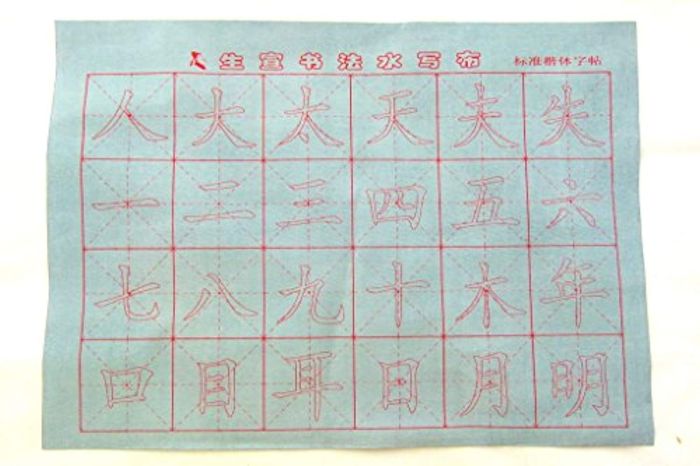 生宣书法水写布 标准楷体字帖
人大太天夫失
一二三四五六
七八九十木年
口目耳日月明